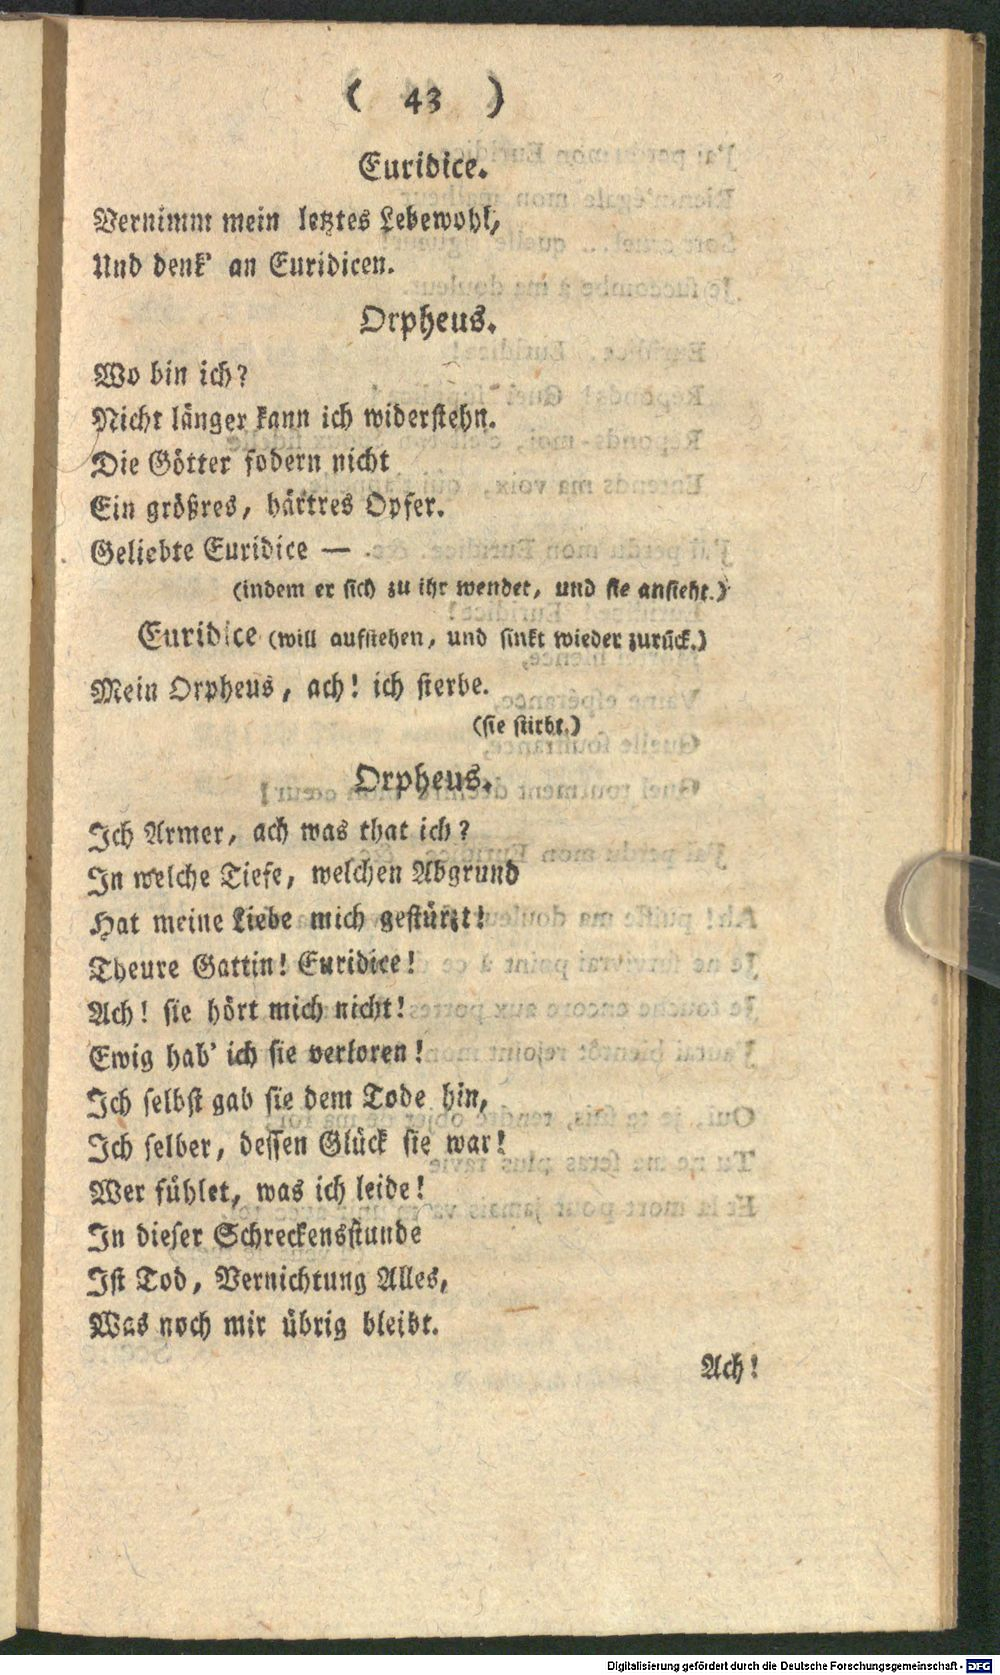 ( 43 )
Euridice.
Vernimm mein letztes Lebewohl,
Und denk' an Euridicen.
Orpheus.
Wo bin ich?
Nicht länger kann ich widerstehn.
Die Götter fodern nicht
Ein größres, härtres Opfer.
Geliebte Euridice —
(indem er sich zu ihr wendet, und sie ansieht.)
Euridice (will aufstehen, und sinkt wieder zurück.)
Mein Orpheus, ach! ich sterbe.
(sie stirbt.)
Orpheus.
Ich Armer, ach was that ich?
In welche Tiefe, welchen Abgrund
Hat meine Liebe mich gestürzt!
Theure Gattin! Euridice!
Ach! sie hört mich nicht!
Ewig hab' ich sie verloren!
Ich selbst gab sie dem Tode hin,
Ich selber, dessen Glück sie war!
Wer fühlet, was ich leide!
In dieser Schreckensstunde
Ist Tod, Vernichtung Alles,
Was noch mir übrig bleibt.
Ach!
Digitalisierung gefördert durch die Deutsche Forschungsgemeinschaft - DFG